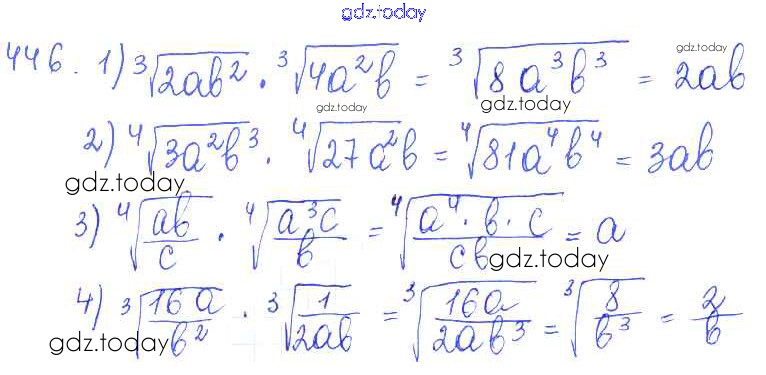 gdz.today
446. 1) ∛(2ab²) · ∛(4a²b) = ∛(8a³b³) = 2ab
gdz.today
gdz.today
gdz.today
2) ⁴√(3a²b³) · ⁴√(27a²b) = ⁴√(81a⁴b⁴) = 3ab
gdz.today
3) ⁴√(ab/c) · ⁴√(a³c/b) = ⁴√(a⁴·b·c/cb) = a
gdz.today
gdz.today
4) ∛(16a/b²) · ∛(1/2ab) = ∛(16a/2ab³) = ∛(8/b³) = 2/b
gdz.today
gdz.today